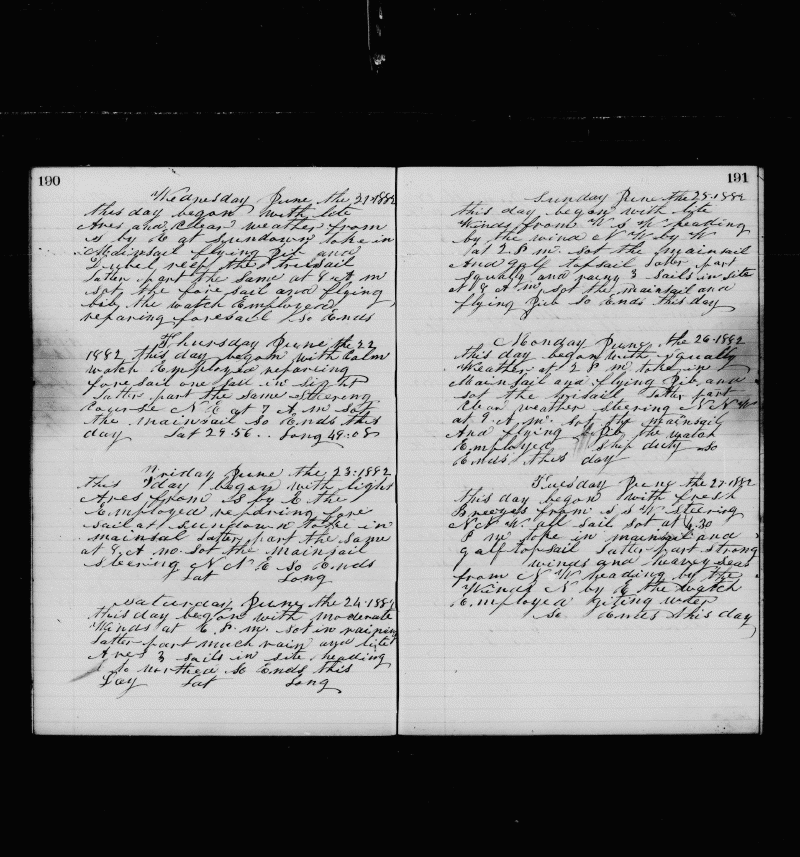 190
Wednesday June the 21-1882
this day began with lite
Ares and Clear weather from
S by E at sundown toke in
Mainsail flying Jib and
Dubel reef the trisail
Latter part the same at 8 A m
sot the fore sail and flying
bib, the watch Employed
reparing foresail So Ends
Thursday June the 22
1882 this day began with Calm
watch Employed reparing
foresail one sail in sight
latter part the same Steering
Course N E at 7 A. m sot
the mainsail so Ends this
day Lat 29-56.. Long 49-08
Friday June the 23-1882
this day began with light
Ares from S by E the
Employed reparing fore
sail at sundown toke in
mainsal Latter part the same
at 8 A mo. sot the Mainsail
Steering N N E So Ends
Lat Long
Saturday June the 24-1882
this day began with moderate
Winds at 6. P m. sot in raining
latter part much rain and lite
Ares 3 sails in site heading
to northed So Ends this
Day Lat Long
191
Sunday June the 25-1882
this day began with lite
Winds from W S W heading
by the wind N W by W
at 2 P m. sot the mainsail
And gafe topsail latter part
Squaly and rainy 3 Sails in site
at 8 A m. sot the mainsail and
flying Jib So Ends this day
Monday June the 26-1882
this day began with squaly
Weather at 2 P m toke in
Mainsail and flying Jib, and
sot the trisail latter part
Clear weather steering N N W
at 9 A. m. sot the mainsail
And flying Jib the watch
Employed Ship duty So
Ends, this day
Tuesday June the 27-1882
this day began with fresh
Breezes from S S W steering
N N W all sail sot at 4,30
P m toke in mainsail and
galf topsail latter part strong
winds and heavey seas
from N W heading by the
Winds N by E the watch
Employed
So Ends this day